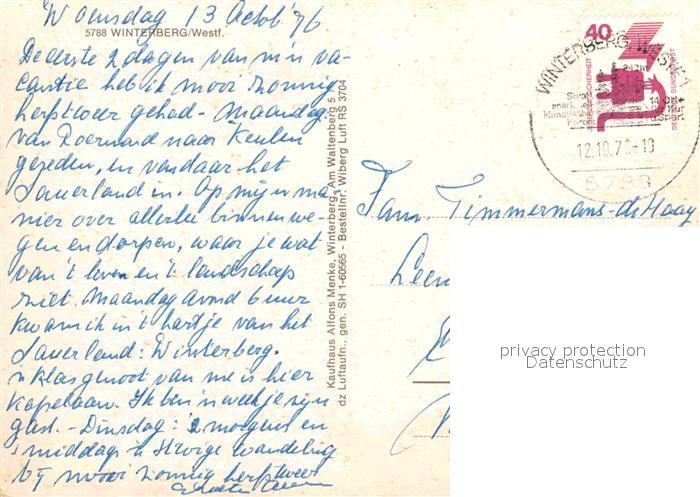 Woensdag 13 Octob '76
5788 WINTERBERG/Westf.
De eerste 2 dagen van m'n va-
cantie heb ik mooi zonnig
herfstweer gehad - maandag
van Roermond naar Keulen
gereden, en vandaar het
Sauerland in. Op mijn ma
nier over allerlei binnenwe-
gen en dorpen, waar je wat
van 't leven en 't landschap
ziet. Maandag avond 6 uur
kwam ik in 't hartje van het
Sauerland: Winterberg.
'n Klasgenoot van me is hier
kapelaan. Ik ben 'n weekje zijn
gast. - Dinsdag: 's morgens en
's middags 'n stevige wandeling
bij mooi zonnig herfstweer
Kaufhaus Alfons Menke, Winterberg, Am Waltenberg 5
dz Luftaufn., gen. SH 1-60565 - Bestellnr. Wiberg Luft RS 3704
40
DEUTSCHE BUNDESPOST
WINTERBERG, WESTF
12.10.76-19
5788
Fam. Timmermans-de Haay
privacy protection
Datenschutz